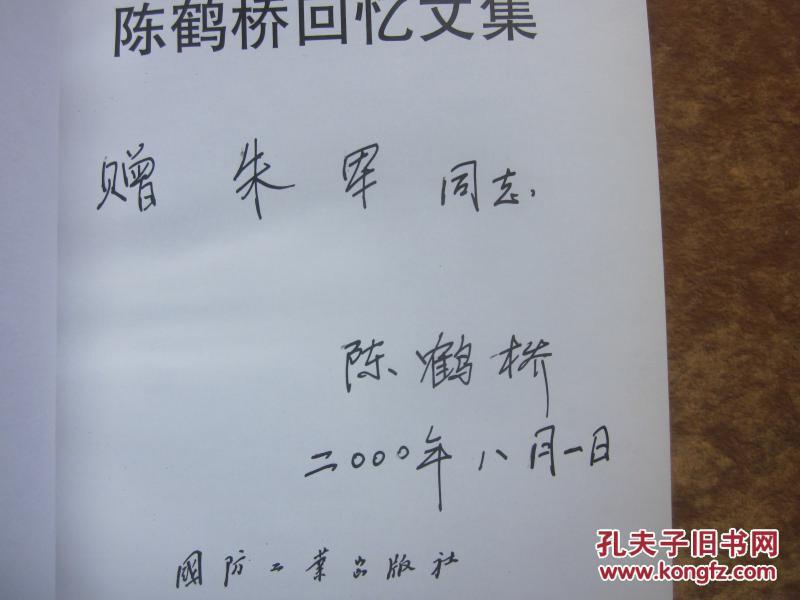 陈鹤桥回忆文集
赠 朱 军 同志
陈鹤桥
二000年八月一日
國防工业出版社
孔夫子旧书网
www.kongfz.com